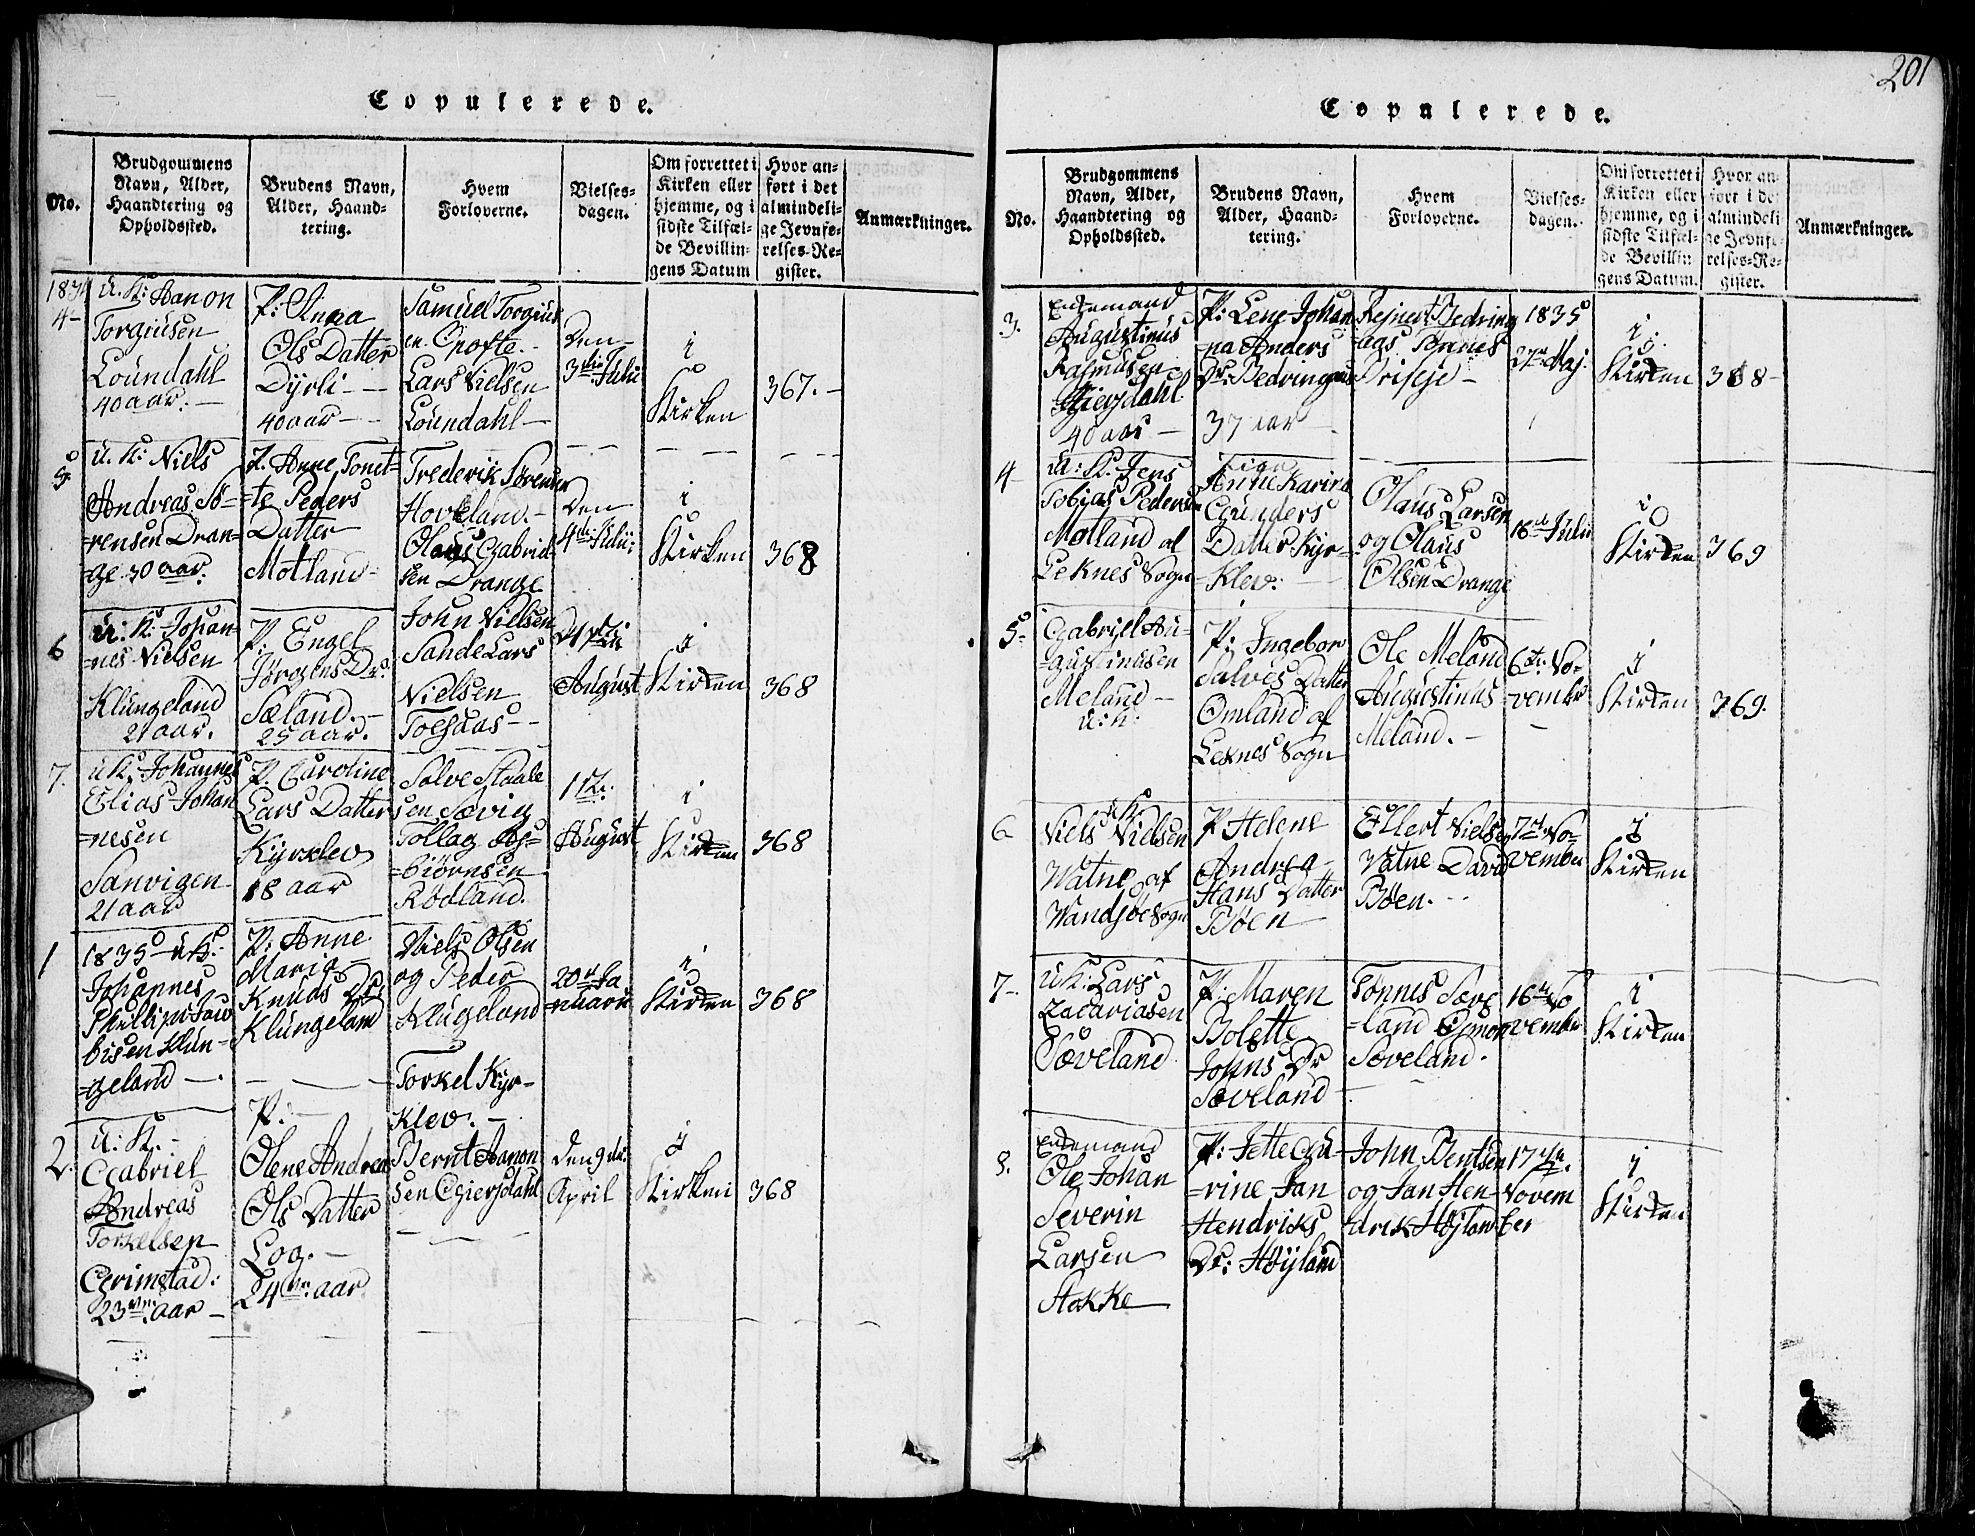 Copulerede.
No.
Brudgommens
Navn, Alder,
Haandtering og
Opholdssted.
Brudens Navn,
Alder, Haand-
tering.
Hvem
Forloverne.
Vielses-
dagen.
Om forrettet i
Kirken eller
hjemme, og i
sidste Tilfæl-
de Bevillin-
gens Datum
Hvor an-
ført i det
almindeli-
ge Jevnfø-
relses-Re-
gister.
Anmærkninger.
1834
4-
U. K: Aanon
Torgiusen
Loundahl
40 aar. -
P: Anna
Ols Datter
Dyrli -
40 aar -
Samuel Torgius
en
Lars Nielsen
Loundahl -
Den
3die Julii
i
Kirken
367. -
5.
U. K: Niels
Andreas Sö-
rensen Dran-
ge 30 aar.
P. Anne Tonet-
-te Peders
Datter
Motland-
Frederik Sörensen
Hoveland. -
Olaus Gabriel-
sen Drange
Den
4de Julii
i
Kirken
368
6
U. K: Johan-
nes Nielsen
Klungeland
21 aar.
P. Engel
Jörgens Dr.
Sæland. -
25 aar.
John Nielsen
Sande Lars
Nielsen
August
i
Kirken
368
7.
U K. Johannes
Elias Johan
=nesen
Sanvigen
21 aar
P. Caroline
Lars Datter
Kyrklev
18 aar
Salve Staale
sen Sævig
Tollag As-
-biörnsen
Rödland.
11te
August
i
Kirken
368
1
1835 - U K:
Johannes
Phillip Jaco
bisen Klun-
=geland -
P. Anne
Maria
Knuds Dr
Klungeland
Niels Olsen
og Peder
Klugeland
Torkel Kyr-
klev. -
20de Ja
=nuarii
i
Kirken
368
2.
U: K. -
Gabriel
Andreas
Torkelsen
Grimstad:
23 aar -
P. -
Olene Andrea
Ols Datter
Log. -
24 aar
Bernt Aanon
sen Gjersdahl
Den 9de
April
i
Kirken
368
201
Copulerede.
No.
Brudgommens
Navn, Alder,
Haandtering og
Opholdssted.
Brudens Navn,
Alder, Haand-
tering.
Hvem
Forloverne.
Vielses-
dagen.
Om forrettet i
Kirken eller
hjemme, og i
sidste Tilfæl-
de Bevillin
gens Datum.
Hvor an-
ført i de
almindeli
ge Jevnfø-
relses-Re-
gister.
Anmærkninger.
3.
Enkemand
Augustinus
Rasmusen
Gjersdahl
40 aar -
P: Lene Johan
=na Anders
Dr. Bedringaas
37 aar
Rejnert Bedring
aas Tönnes
1835
27de Maj.
i
Kirken
368 -
4
U: K. Jens
Tobias Pedersen
Motland af
Leknes Sogn
Pigen
Anne Karine
Gunders
Datter Kyr-
-klev.
Olaus Larsen
og Olaus
Olsen Drange
16de Julii
i
Kirken
369
5.
Gabriel Au-
=gustinusen
Meland -
U: K:
P: Ingebor
Salves Datter
Omland af
Leknes Sogn
Ole Meland
Augustinus
Meland. -
6te No-
vembr
i
Kirken
369.
6
U K
Niels Nielsen
Watne af
Wandsöe Sogn
P Helene
Andrea
Hans Datter
Böen
Ellert Nielsen
Watne David
Böen.
7de No-
vember
i
Kirken
7.
U K: Lars
Zacariasen
Söveland
P: Maren
Bolette
Johns Dr
Sæveland
Tönnes Sæve
=land
Sæveland.
16de No
vember
i
Kirken
8.
Enkemand
Ole Johan
Severin
Larsen
Stokke
P: Jette Cath
=rine Jan
Hendriks
Dr: Höyland
John Bentsen
og Jan Hen-
drik Höjland
17de
Novem
ber
i
Kirken